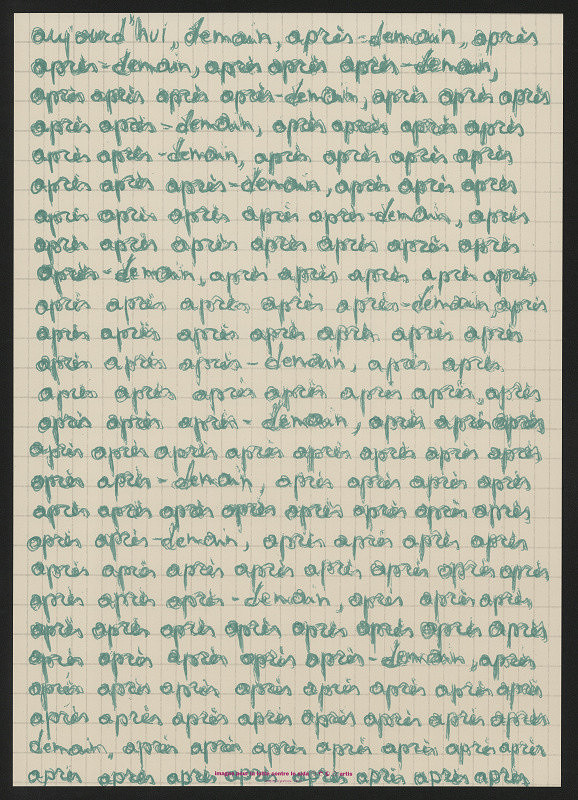 aujourd'hui, demain, après-demain, après
après-demain, après après après-demain,
après après après après-demain, après après après
après après-demain, après après après après
après après-demain, après après après après
après après après-demain, après après après
après après après après après-demain, après
après après après après après après après
après-demain, après après après après après
après après après après après-demain, après
après après après après après après après
après après après-demain, après après
après après après après après après, après
après après après-demain, après après après
après après après après après après après après
après après-demain, après après après après
après après après après après après après après
après après-demain, après après après après
après après après après après après après après
après après après-demain, après après après
après après après après après après après après
après après après après après-demain, après
après après après après après après après après
après après après après après après après après
demain, après après après après après après après
après après après après après après après après
Images pour la lutte contre le sida